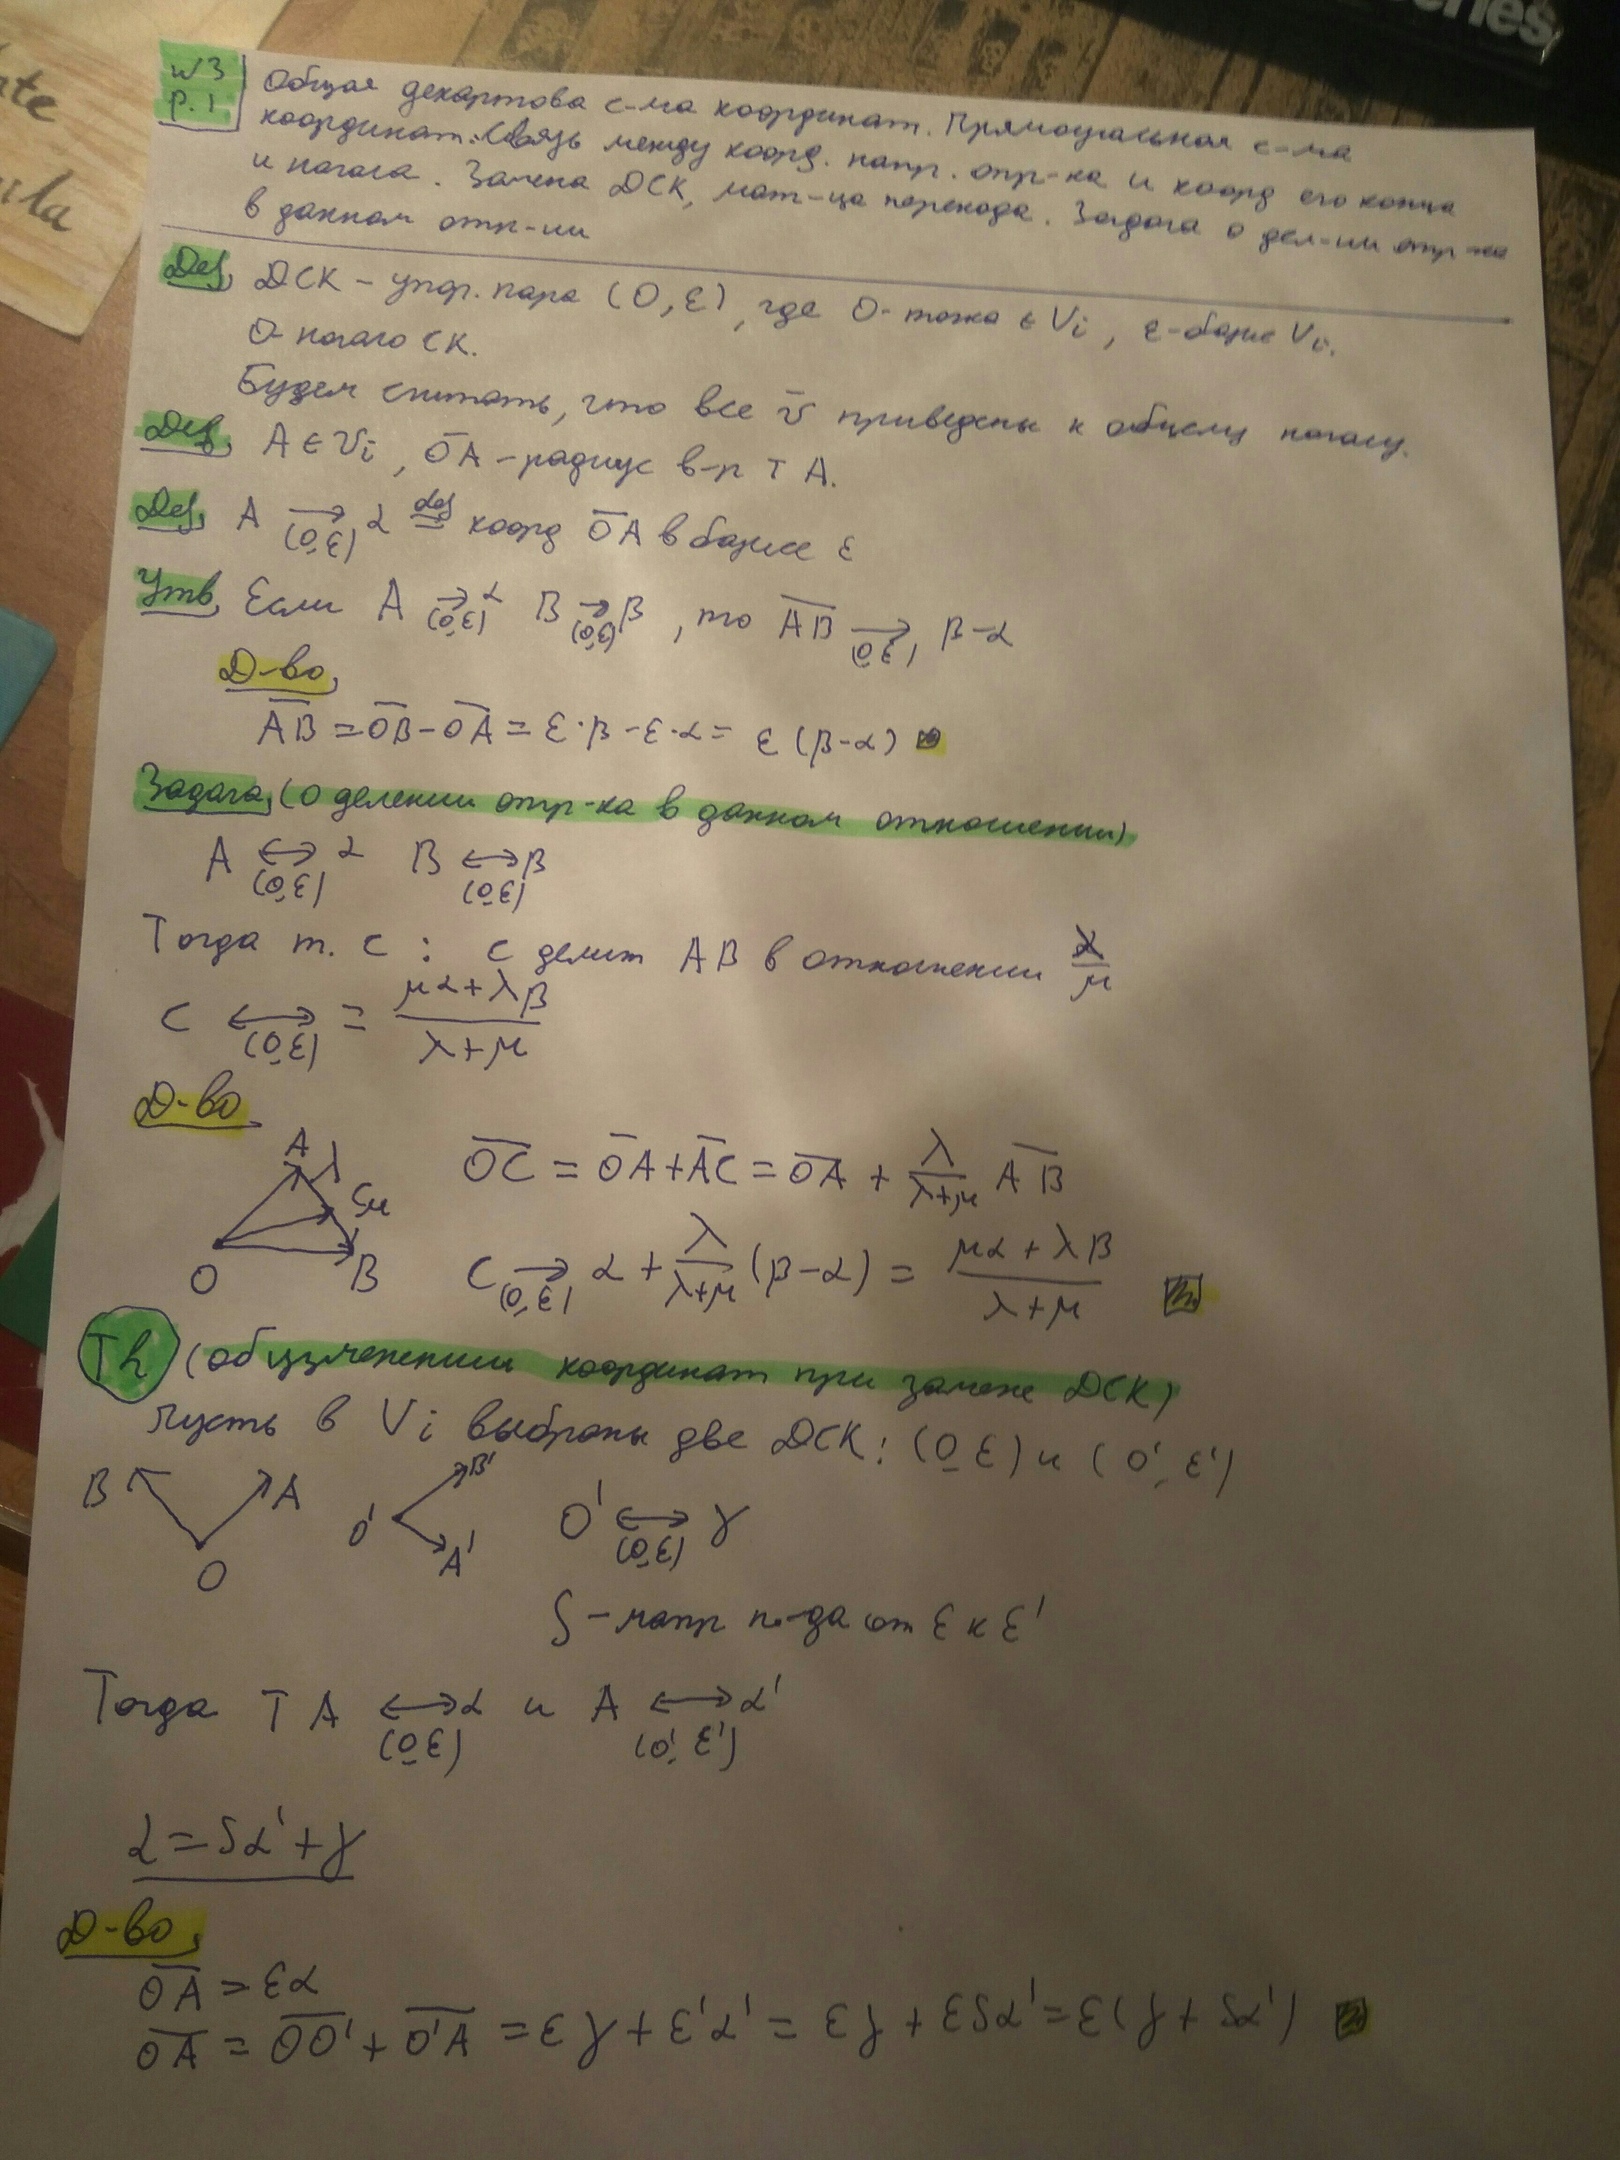 eries
te
ula
N3
p.1
Общая декартова с-ма координат. Прямоугольная с-ма
координат. Связь между коорд. напр. отр-ка и коорд его конца
и начала. Замена ДСК, мат-ца перехода. Задача о дел-ии отр-ка
в данном отн-ии
Def, ДСК – упор. пара (O, ε), где O - точка ∈ Vi, ε - базис Vi.
O начало СК.
Будем считать, что все v̄ приведены к общему началу.
Def, A ∈ Vi, O̅A – радиус в-р т A.
Def, A →(O,ε) α def= коорд O̅A в базисе ε
Утв, Если A →(O,ε) α B →(O,ε) β, то A̅B̅ →(O,ε) β-α
Д-во,
A̅B̅ = O̅B - O̅A = ε·β - ε·α = ε(β-α)
Задача, (о делении отр-ка в данном отношении)
A ↔(O,ε) α B ↔(O,ε) β
Тогда т. C : C делит AB в отношении λ/μ
C ↔(O,ε) = (μα+λβ)/(λ+μ)
Д-во
A λ
C μ
O B
O̅C̅ = O̅A + A̅C = O̅A̅ + λ/(λ+μ) A̅B̅
C →(O,ε) α + λ/(λ+μ) (β-α) = (μα + λβ)/(λ+μ)
Th (об изменении координат при замене ДСК)
Пусть в Vi выбраны две ДСК: (O, ε) и (O', ε')
B A O' B' A' O' ↔(O,ε) γ
O
S – матр п-да от ε к ε'
Тогда т A ↔(O,ε) α и A ↔(O',ε') α'
α = Sα' + γ
Д-во,
O̅A̅ = εα
O̅A̅ = O̅O̅' + O̅'A̅ = εγ + ε'α' = εγ + εSα' = ε(γ + Sα')